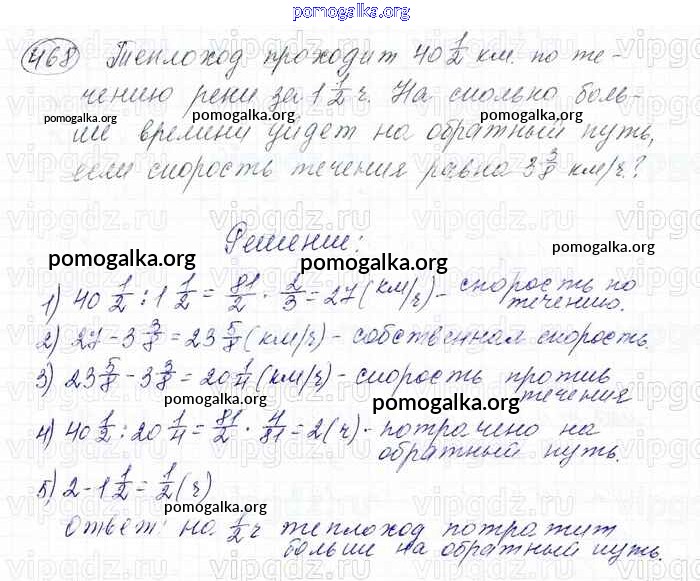 pomogalka.org
468 Теплоход проходит 40 1/2 км. по те-
чению реки за 1 1/2 ч. На сколько боль-
ше времени уйдет на обратный путь,
если скорость течения равна 3 3/8 км/ч?
Решение:
1) 40 1/2 : 1 1/2 = 81/2 · 2/3 = 27 (км/ч) - скорость по
течению.
2) 27 - 3 3/8 = 23 5/8 (км/ч) - собственная скорость.
3) 23 5/8 - 3 3/8 = 20 1/4 (км/ч) - скорость против
течения
4) 40 1/2 : 20 1/4 = 81/2 · 4/81 = 2 (ч) - потрачено на
обратный путь.
5) 2 - 1 1/2 = 1/2 (ч)
Ответ: на 1/2 ч теплоход потратит
больше на обратный путь.
pomogalka.org
pomogalka.org
pomogalka.org
pomogalka.org
pomogalka.org
pomogalka.org
pomogalka.org
pomogalka.org